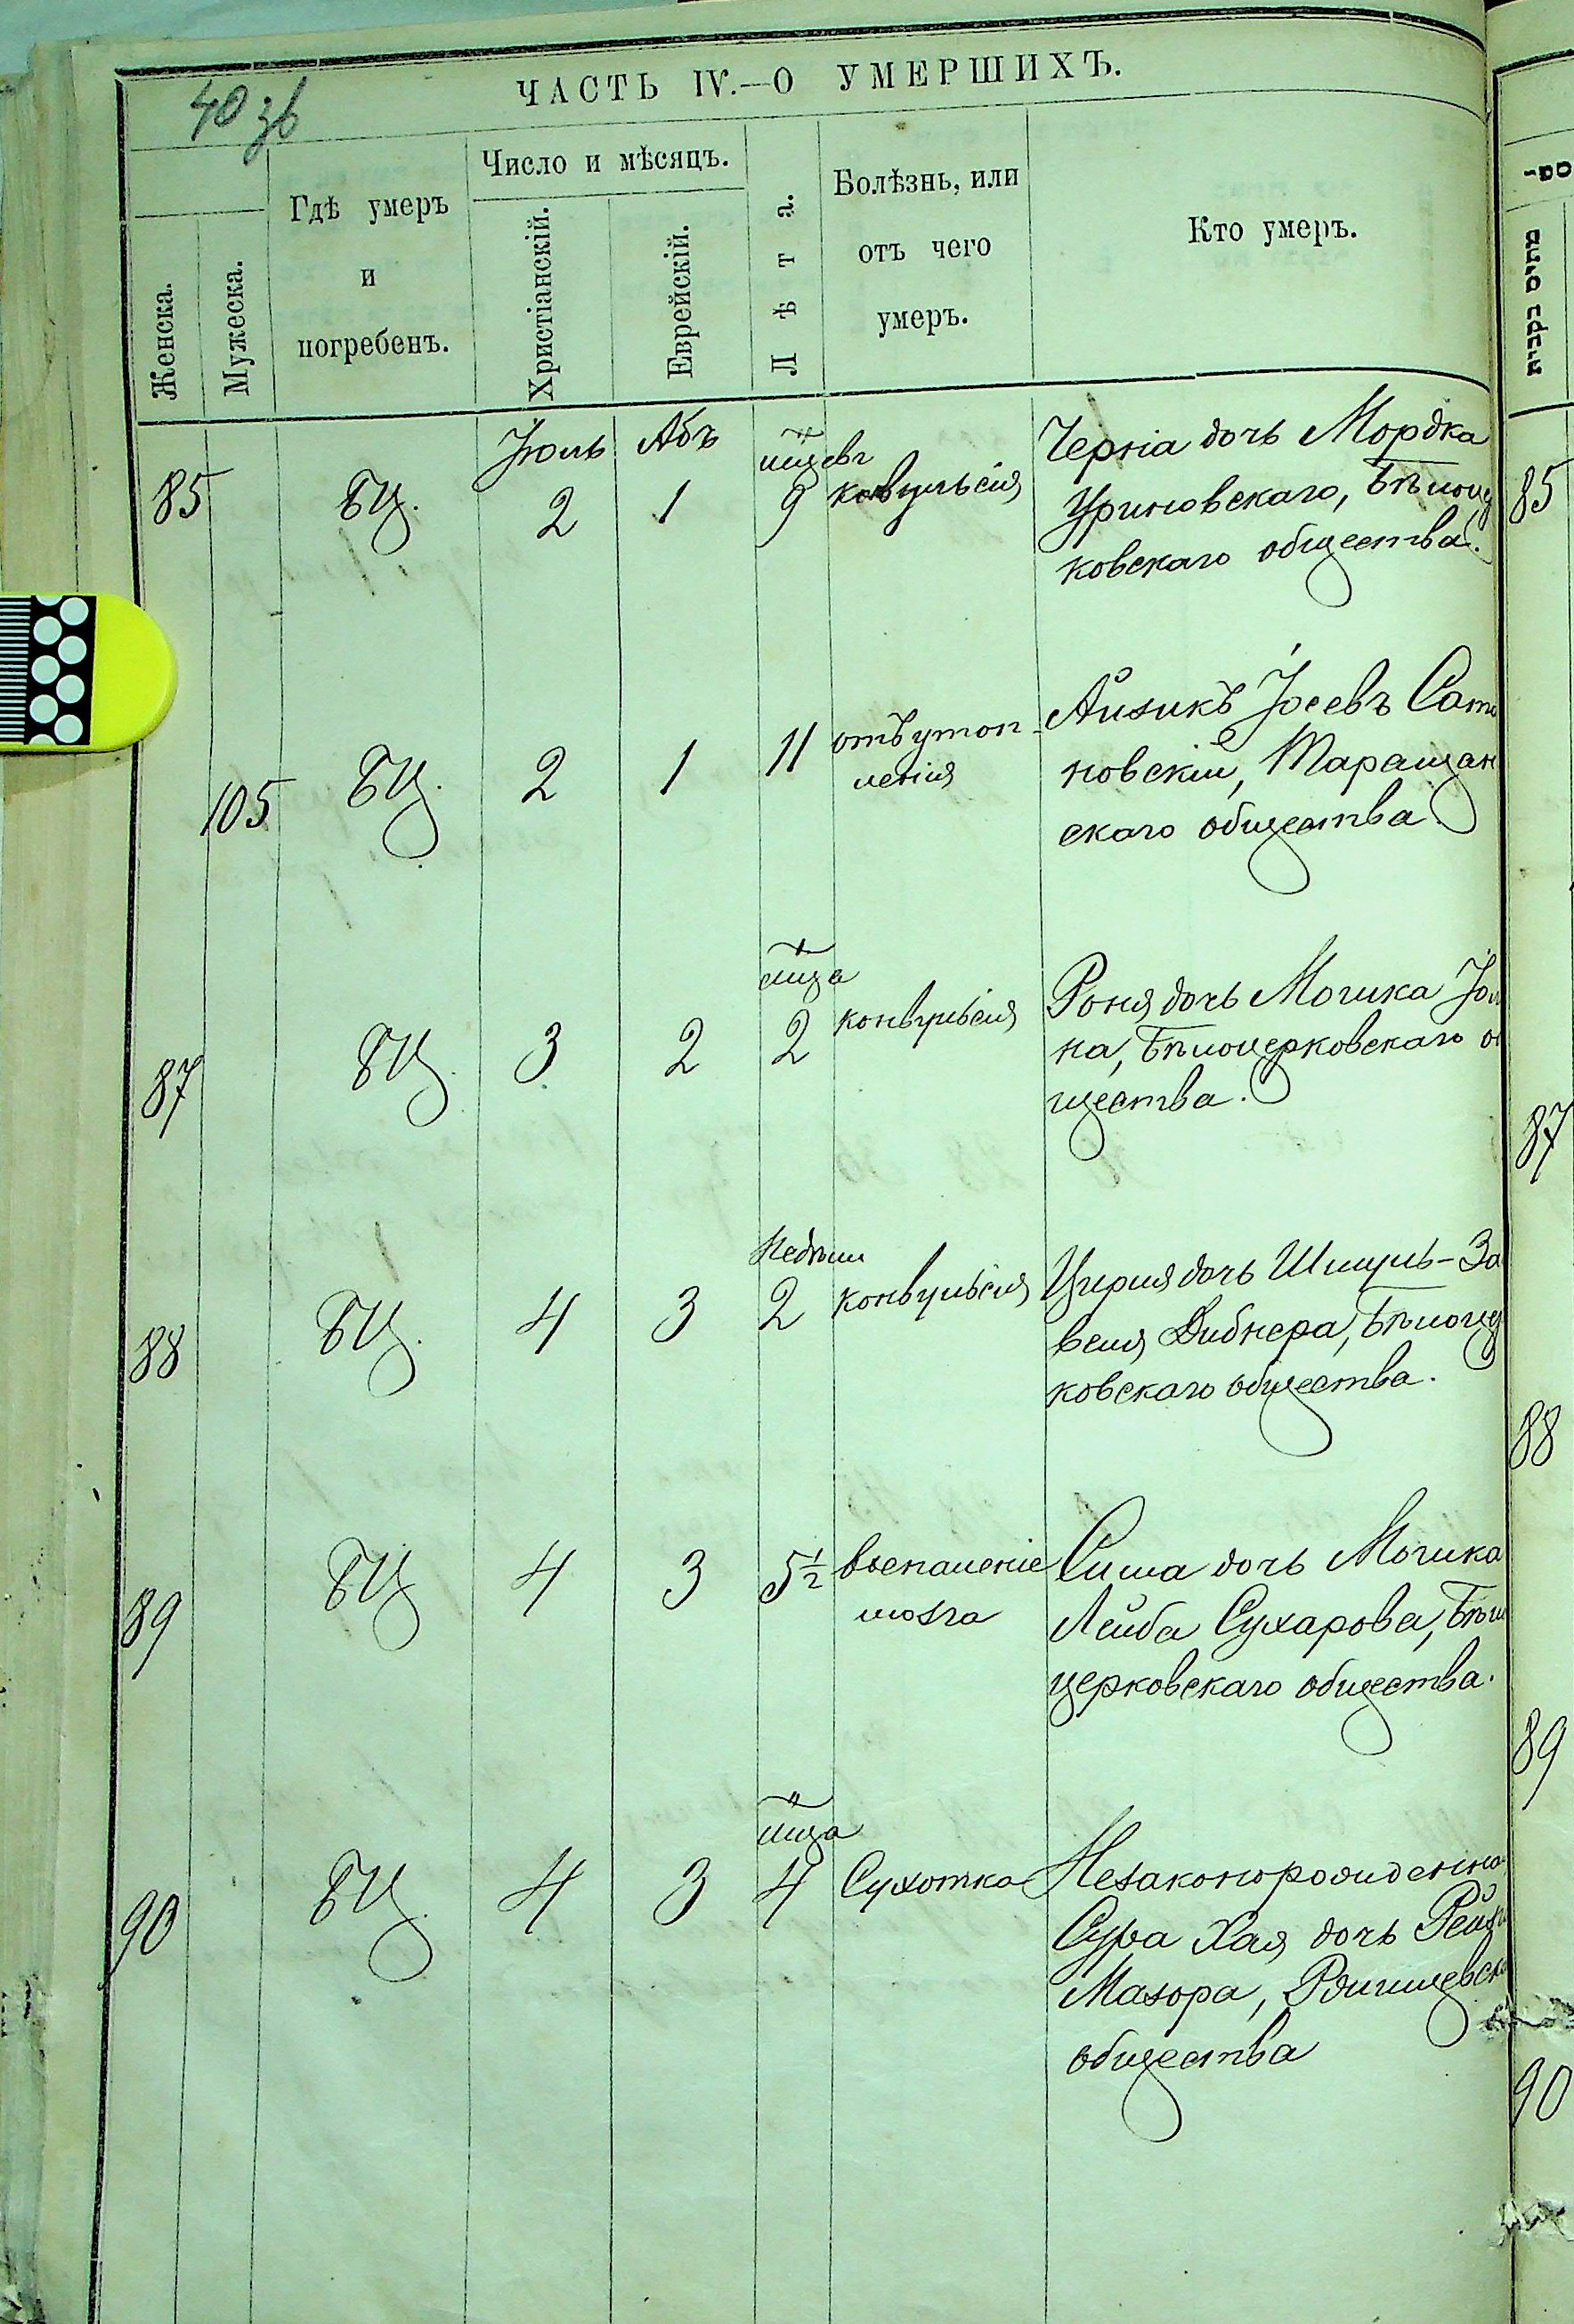 40 зв
ЧАСТЬ IV.—О УМЕРШИХЪ.
Женска.
Мужеска.
Гдѣ умеръ
и
погребенъ.
Число и мѣсяцъ.
Христіанскій.
Еврейскій.
Лѣта.
Болѣзнь, или
отъ чего
умеръ.
Кто умеръ.
Іюль Абъ
85 БЦ. 2 1 9 конвульсія
Черніа дочь Мордка
Уриновскаго, Бѣлоцер
ковскаго общества.
85
105 БЦ. 2 1 11 отъ утоп-
ленія
Айзикъ Іосевъ Сата
новскій, Таращан
скаго общества.
мца
87 БЦ. 3 2 2 конвульсія
Роня дочь Мошка
на, Бѣлоцерковскаго об
щества.
87
Недѣли
88 БЦ. 4 3 2 конвульсія
Цирля дочь Шмуль-За
веля Дибнера, Бѣлоцер
ковскаго общества.
88
89 БЦ 4 3 5½ воспаленіе
мозга
Сима дочь Мошка
Лейба Сухарова, Бѣло
церковскаго общества.
89
мца
90 БЦ. 4 3 4 Сухотка
Незаконорожденна
Сура Хая дочь
Мазора, Ржищевск
общества
90